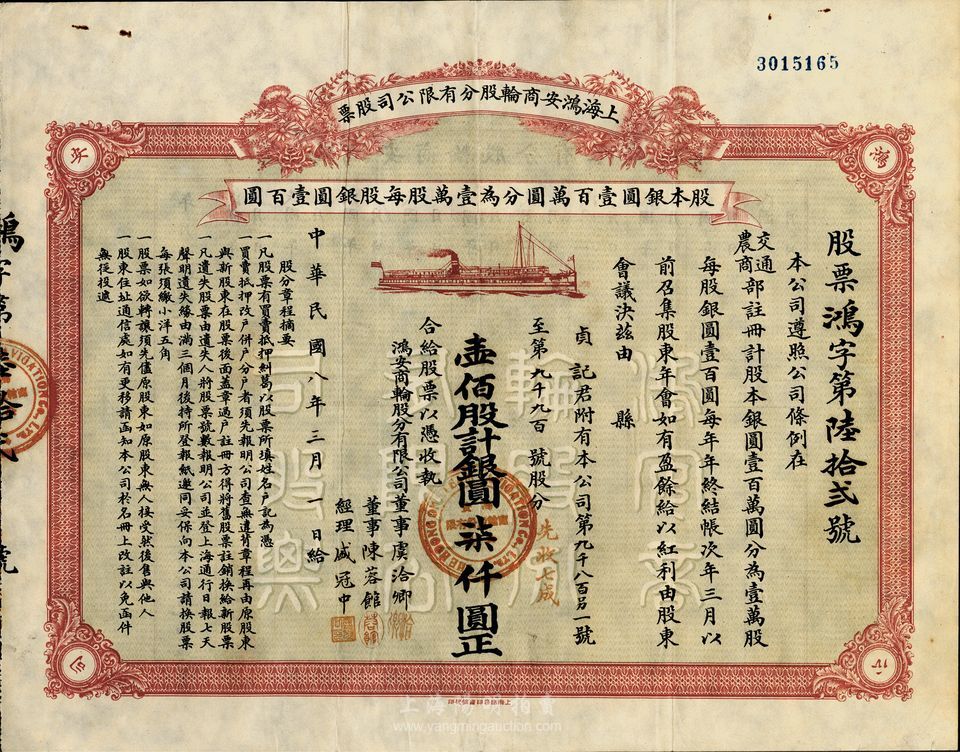 3015165
上海鴻安商輪股分有限公司股票
股本銀圓壹百萬圓分為壹萬股每股銀圓壹百圓
股票鴻字第陸拾弍號
本公司遵照公司條例在
交通
農商部註冊計股本銀圓壹百萬圓分為壹萬股
每股銀圓壹百圓每年年終結帳次年三月以
前召集股東年會如有盈餘給以紅利由股東
會議決茲由 縣
貞記君附有本公司第九千八百另一號
至第九千九百號股分
先收七成
壹佰股計銀圓柒仟圓正
合給股票以憑收執
鴻安商輪股分有限公司董事虞洽卿
董事陳蓉館
經理盛冠中
中華民國八年三月一日給
股分章程摘要
一凡股票有買賣抵押糾葛以股票所填姓名户記為憑
一買賣抵押改户併户分户者須先報明公司查無違背章程再由原股東
與新股東在股票後面蓋章過户註冊方得將舊股票註銷換給新股票
一凡遺失股票由遺失人將股票號數報明公司並登上海通行日報七天
聲明遺失緣由滿三個月後持所登報紙邀同妥保向本公司請換股票
每張須繳小洋五角
一股票如欲轉讓須先儘原股東如原股東無人接受然後售與他人
一股東住址通信處如有更移請函知本公司於名冊上改註以免函件
無從投遞
鴻字第陸拾弍號
www.yangmingauction.com